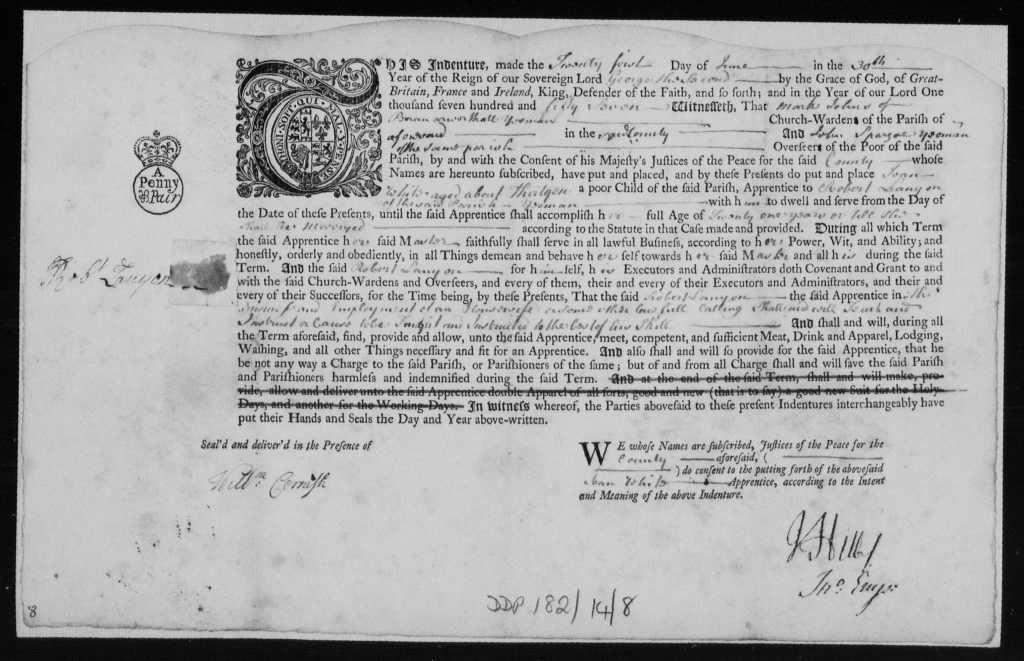 THIS Indenture, made the Twenty first Day of June in the 30th
Year of the Reign of our Sovereign Lord George the Second by the Grace of God, of Great-
Britain, France and Ireland, King, Defender of the Faith, and so forth; and in the Year of our Lord One
thousand seven hundred and fifty Seven Witnesseth, That Mark Johns of
Yeoman Church-Wardens of the Parish of
in the County And John Spargoe Yeoman
of the same parish Overseers of the Poor of the said
Parish, by and with the Consent of his Majesty's Justices of the Peace for the said County whose
Names are hereunto subscribed, have put and placed, and by these Presents do put and place Joan
White aged about Thirteen a poor Child of the said Parish, Apprentice to Robert Lanyon
of the said Parish Yeoman with him to dwell and serve from the Day of
the Date of these Presents, until the said Apprentice shall accomplish her full Age of Twenty one years or till she
shall be Marryed according to the Statute in that Case made and provided. During all which Term
the said Apprentice her said Master faithfully shall serve in all lawful Business, according to her Power, Wit, and Ability; and
honestly, orderly and obediently, in all Things demean and behave her self towards her said Master and all his during the said
Term. And the said Robert Lanyon for himself, his Executors and Administrators doth Covenant and Grant to and
with the said Church-Wardens and Overseers, and every of them, their and every of their Executors and Administrators, and their and
every of their Successors, for the Time being, by these Presents, That the said Robert Lanyon the said Apprentice in the
business and Employment of an Housewife or some other Lawfull Calling Shall and will Teach and
Instruct or Cause to be Taught and Instructed to the best of his Skill And shall and will, during all
the Term aforesaid, find, provide and allow, unto the said Apprentice, meet, competent, and sufficient Meat, Drink and Apparel, Lodging,
Washing, and all other Things necessary and fit for an Apprentice. And also shall and will so provide for the said Apprentice, that he
be not any way a Charge to the said Parish, or Parishioners of the same; but of and from all Charge shall and will save the said Parish
and Parishioners harmless and indemnified during the said Term. And at the end of the said Term, shall and will make, pro-
vide, allow and deliver unto the said Apprentice double Apparel of all sorts, good and new (that is to say) a good new Suit for the Holy-
Days, and another for the Working-Days. In witness whereof, the Parties abovesaid to these present Indentures interchangeably have
put their Hands and Seals the Day and Year above-written.
A
Penny
Pair
Robt Lanyon
Seal'd and deliver'd in the Presence of
Willm Cornish
WE whose Names are subscribed, Justices of the Peace for the
County aforesaid, (
) do consent to the putting forth of the abovesaid
Joan White Apprentice, according to the Intent
and Meaning of the above Indenture.
DDP 182/14/8
8